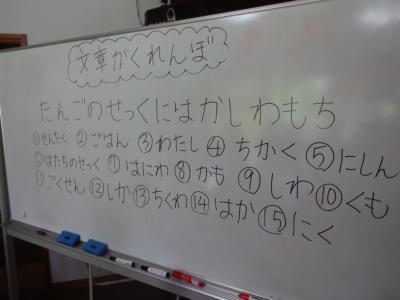 文章がくれんぼ
たんごのせっくにはかしわもち
①せんたく ②ごはん ③わたし ④ちかく ⑤にしん
⑥はたちのせっく ⑦はにわ ⑧かも ⑨しわ ⑩くも
⑪ごくせん ⑫しか ⑬ちくわ ⑭はか ⑮にく